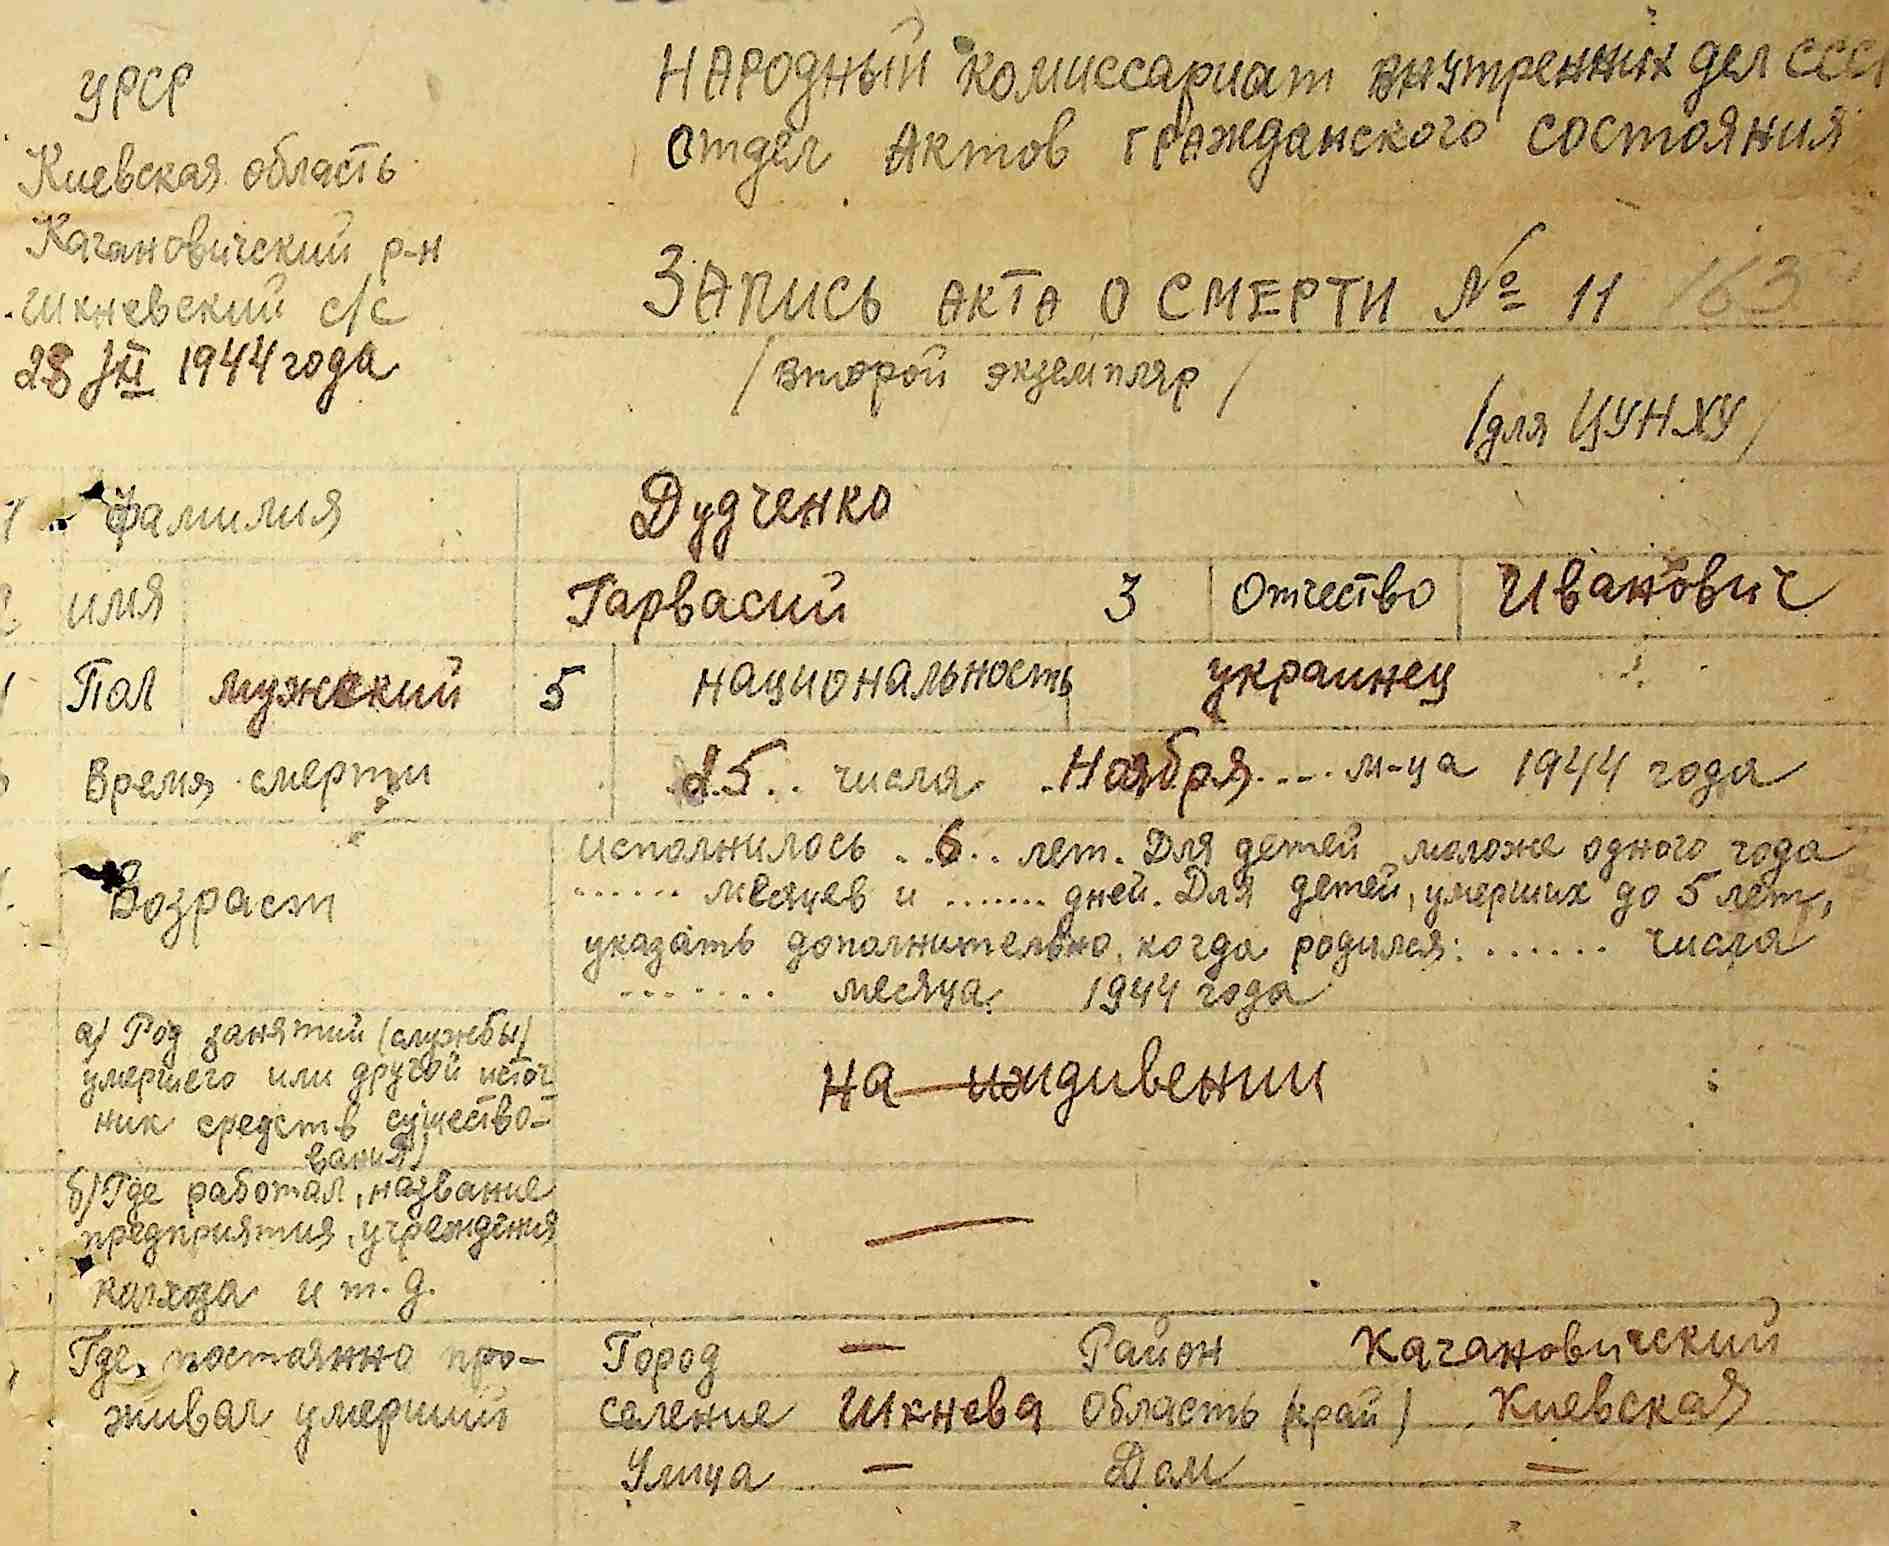 УРСР
Киевская область
Кагановичский р-н
Шкневский с/с
28 XII 1944 года
НАРОДНЫЙ комиссариат внутренних дел СССР
отдел Актов гражданского состояния
ЗАПИСЬ АКТА О СМЕРТИ № 11 163
/второй экземпляр/
/для ЦУНХУ/
1 фамилия Дудченко
2 имя Гарвасий 3 Отчество Иванович
Пол мужский 5 национальность украинец
Время смерти 25 числа Ноября м-ца 1944 года
Возраст исполнилось 6 лет. Для детей моложе одного года
месяцев и дней. Для детей, умерших до 5 лет,
указать дополнительно, когда родился: числа
месяца 1944 года
а) Род занятий (службы)
умершего или другой источ
ник средств существо-
вания)
на иждивении
б) Где работал, название
предприятия, учреждения
колхоза и т. д.
—
Где постоянно про-
живал умерший
Город — Район Кагановичский
селение Шкнева Область (край) Киевская
Улица — Дом —